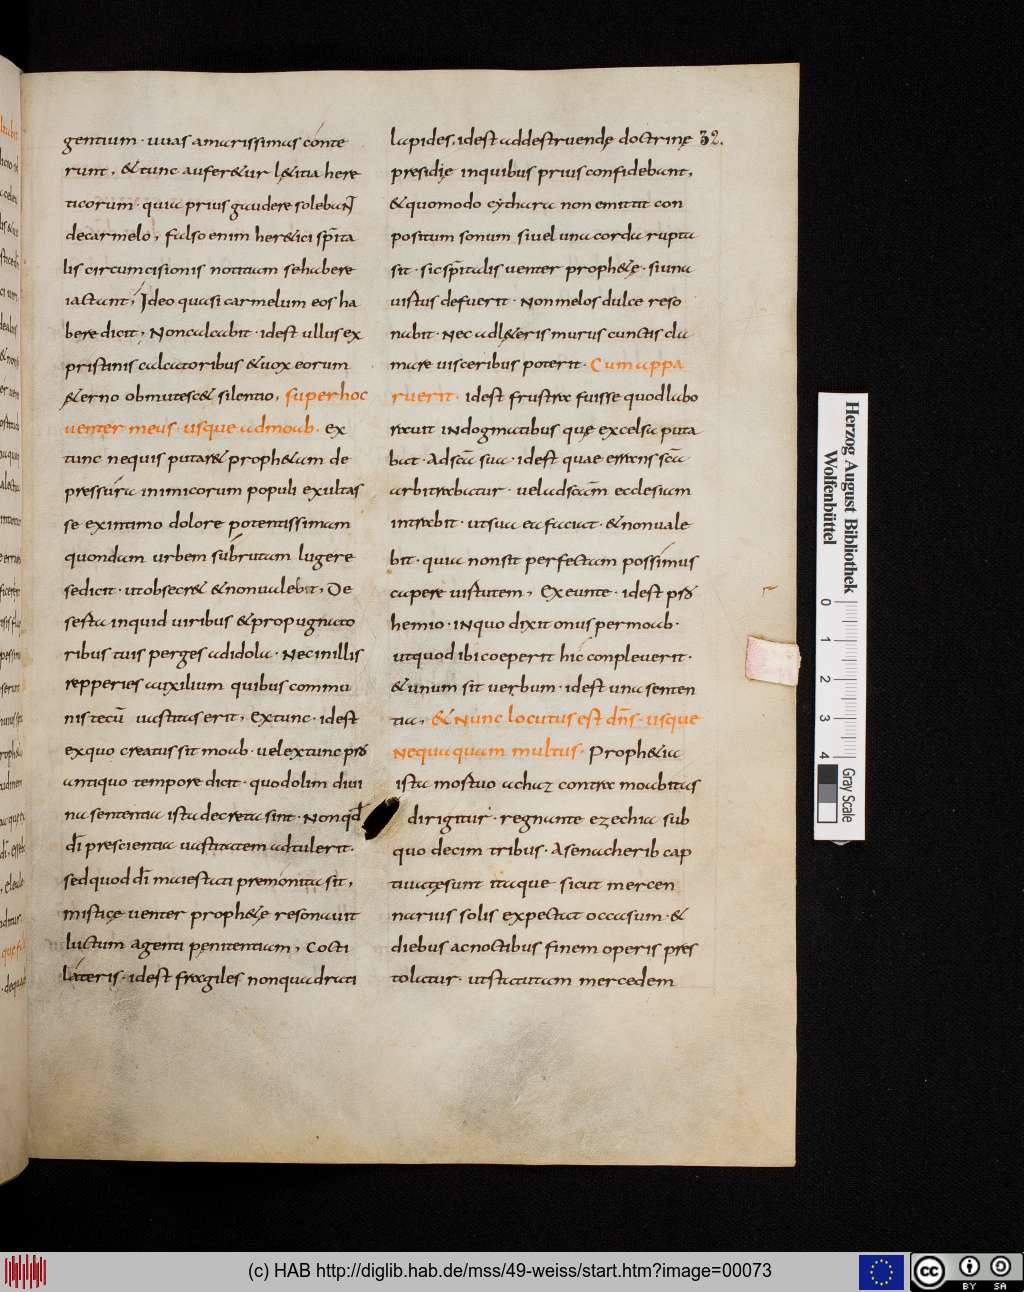 gentium · uuas amarissimas conte
runt, & tunc aufer&ur l&itia here
ticorum · quia prius gaudere solebaNT
decarmelo, falso enim her&ici sp̄ita
lis circumcisionis notitiam sehabere
iactant, Ideo quasi carmelum eos ha
bere dicit, Noncalcabit · idest ullus ex
pristinis calcatoribus & uox eorum
&erno obmutesc& silentio, super hoc
uenter meus · usque admoab · ex
tunc nequis putar& proph&am de
pressura inimicorum populi exultas
se exintimo dolore potentissimam
quondam urbem subrutam lugere
sedicit · utobsecr& & nonualebit, De
festa inquid uiribus & propugnato
ribus tuis perges adidola · Necinillis
repperies auxilium quibus commu
nis tecū uastitas erit, Extunc · idest
exquo creatus sit moab · uel extunc pro
antiquo tempore dicit · quodolim diui
na sententia ista decreta sint · Nonqd
dī prescientia uastitatem adtulerit.
sed quod dī maiestati premonita sit,
misticę uenter proph&ę resonauit
luctum agenti penitentiam, Cocti
lateris · idest fragiles nonquadrati
lapides, idest addestruendę doctrinę 32.
presidię inquibus prius confidebant,
& quomodo cythara non emittit con
positum sonum siuel una corda rupta
sit · sic sp̄italis uenter proph&ę · si una
uistus defuerit · Nonmelos dulce reso
nabit · Nec adl&eris murus cunctis cla
mare uisceribus poterit · Cum appa
ruerit · idest frustra fuisse quodlabo
rauit indogmatibus quę excelsa puta
bat · Adscā sua · idest quae errans scā
arbitrabatur · uel adscām ecclesiam
intrabit · ut sua ea faciat · & nonuale
bit · quia nonsit perfectam possimus
capere uistutem, Exeunte · idest pro
hemio · inquo dixit onus permoab ·
ut quod ibi coeperit hic conpleuerit ·
& unum sit uerbum · idest una senten
tia, & Nunc locutus est dn̄s · usque
Nequaquam multus · Proph&ia
ista mostuo achaz contra moabitas
dirigitur · regnante ezechia sub
quo decim tribus · Asenacherib cap
tiuatęsunt itaque sicut mercen
narius solis expectat occasum · &
diebus acnoctibus finem operis pres
tolatur · ut statutam mercedem
Herzog August Bibliothek
Wolfenbüttel
0 1 2 3 4
Gray Scale
(c) HAB http://diglib.hab.de/mss/49-weiss/start.htm?image=00073
cc BY SA